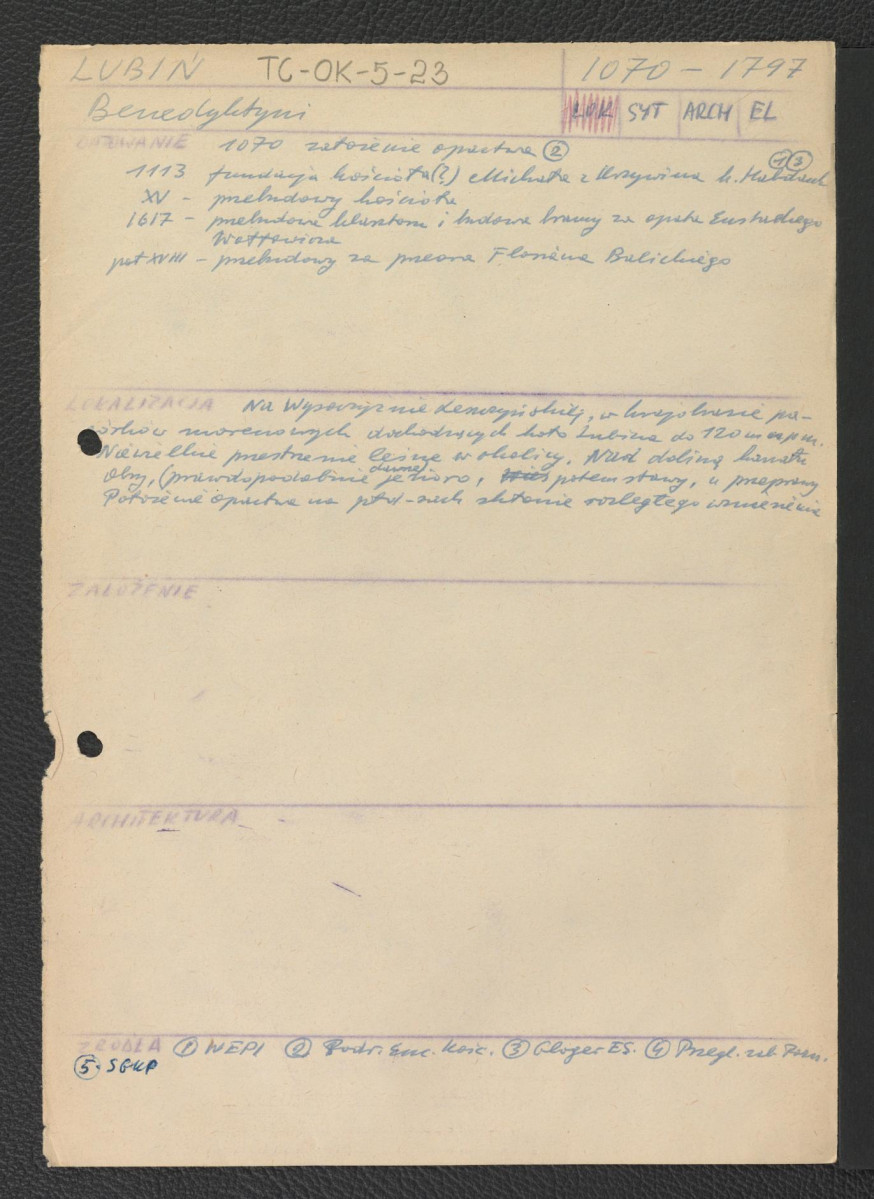 LUBIŃ TC-OK-5-23 1070 - 1797
Benedyktyni LOK SYT ARCH EL
DATOWANIE 1070 założenie opactwa ②
1113 fundacja kościoła (?) Michała z Krzywina h. Habdank ① ③
XV - przebudowy kościoła
1617 - przebudowa klasztoru i budowa bramy za opata Eustachego
przebudowy za przeora Floriana Balickiego
LOKALIZACJA Na Wysoczyźnie Leszczyńskiej, w krajobrazie pa-
górków morenowych dochodzących koło Lubina do 120 m npm.
Niewielkie przestrzenie leśne w okolicy. Nad doliną kanału
Obry, (prawdopodobnie dawniej jezioro, potem stawy, u przeprawy
Położenie opactwa na płd-zach skłonie rozległego wzniesienia
ZAŁOŻENIE
ARCHITEKTURA
ŹRÓDŁA ① WEPI ② Podr. Enc. Kośc. ③ Gloger ES. ④ Przegl. zab. Pozn.
⑤ SGKP